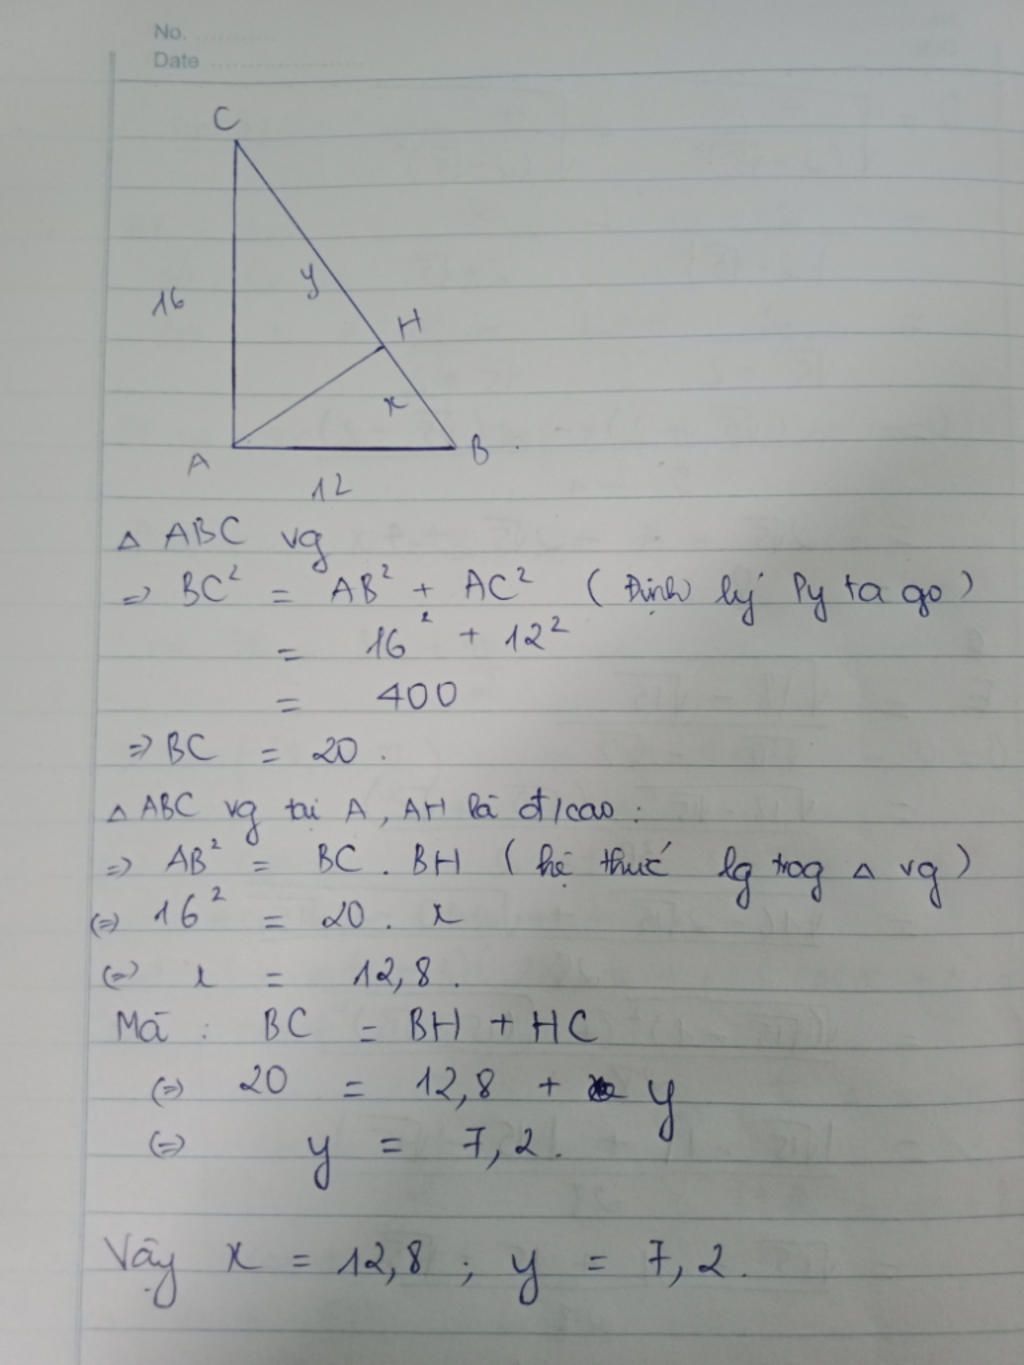 No. ............
Date ........................
C
y
16
H
x
A
B
12
△ ABC vg
=> BC² = AB² + AC² (Định lý Py ta go)
= 16² + 12²
= 400
=> BC = 20.
△ ABC vg tại A, AH là đ/cao :
=> AB² = BC . BH (hệ thức lg trog △ vg)
(=) 16² = 20 . x
(=) x = 12,8.
Mà : BC = BH + HC
(=) 20 = 12,8 + y
(=) y = 7,2.
Vậy x = 12,8 ; y = 7,2.